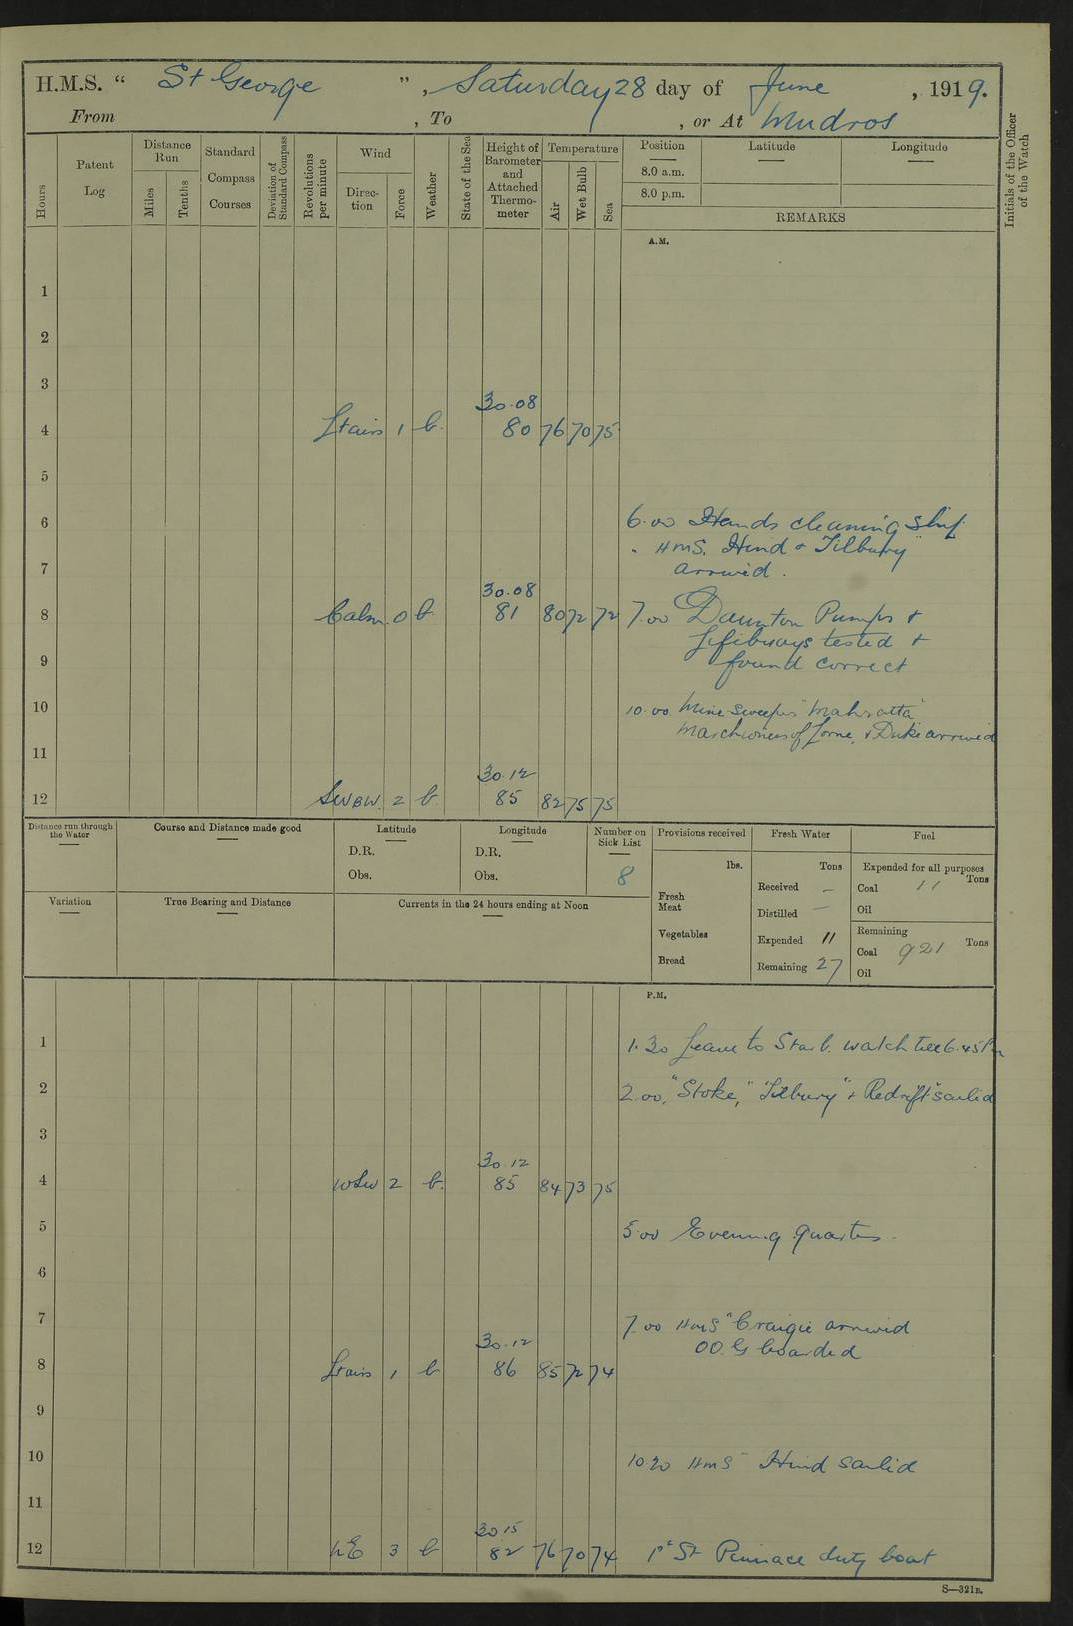 H.M.S. “ St George ”, Saturday 28 day of June, 1919.
From , To , or At Mudros
Hours
Patent Log
Distance Run
Miles
Tenths
Standard Compass Courses
Deviation of Standard Compass
Revolutions per minute
Wind
Direction
Force
Weather
State of the Sea
Height of Barometer and Attached Thermometer
Temperature
Air
Wet Bulb
Sea
Position
8.0 a.m.
8.0 p.m.
Latitude
Longitude
REMARKS
Initials of the Officer of the Watch
A.M.
1
2
3
30.08
4 Ltairs 1 b. 80 76 70 75
5
6 6.00 Hands cleaning Ship.
" HMS. Hind & Tilbury"
7 arrived.
30.08
8 Calm. 0 b. 81 80 72 72 7.00 Daunton Pumps &
Lifebuoys tested &
9 found correct
10 10.00 Mine Sweepers "Mahratta"
Marchioness of Lorne, & Duke arrived
11
30.12
12 SWBW. 2 b 85 82 75 75
Distance run through the Water
Course and Distance made good
Latitude
D.R.
Obs.
Longitude
D.R.
Obs.
Number on Sick List
8
Provisions received
lbs.
Fresh Meat
Vegetables
Bread
Fresh Water
Tons
Received —
Distilled —
Expended 11
Remaining 27
Fuel
Expended for all purposes
Tons
Coal 11
Oil
Remaining
Tons
Coal 921
Oil
Variation
True Bearing and Distance
Currents in the 24 hours ending at Noon
P.M.
1 1.30 Leave to Starb. watch till 6.45 Pm
2 2.00, "Stoke," "Tilbury" & Redrift" sailed
3
30.12
4 WSW 2 b. 85 84 73 75
5 5.00 Evening quarters.
6
7 7.00 HMS "Craigie arrived
30.12
OO.G boarded
8 Ltairs 1 b 86 85 72 74
9
10 10 20 HMS Hind sailed
11
30 15
12 NE 3 b 82 76 70 74 1st St Pinnace duty boat
S—321B.